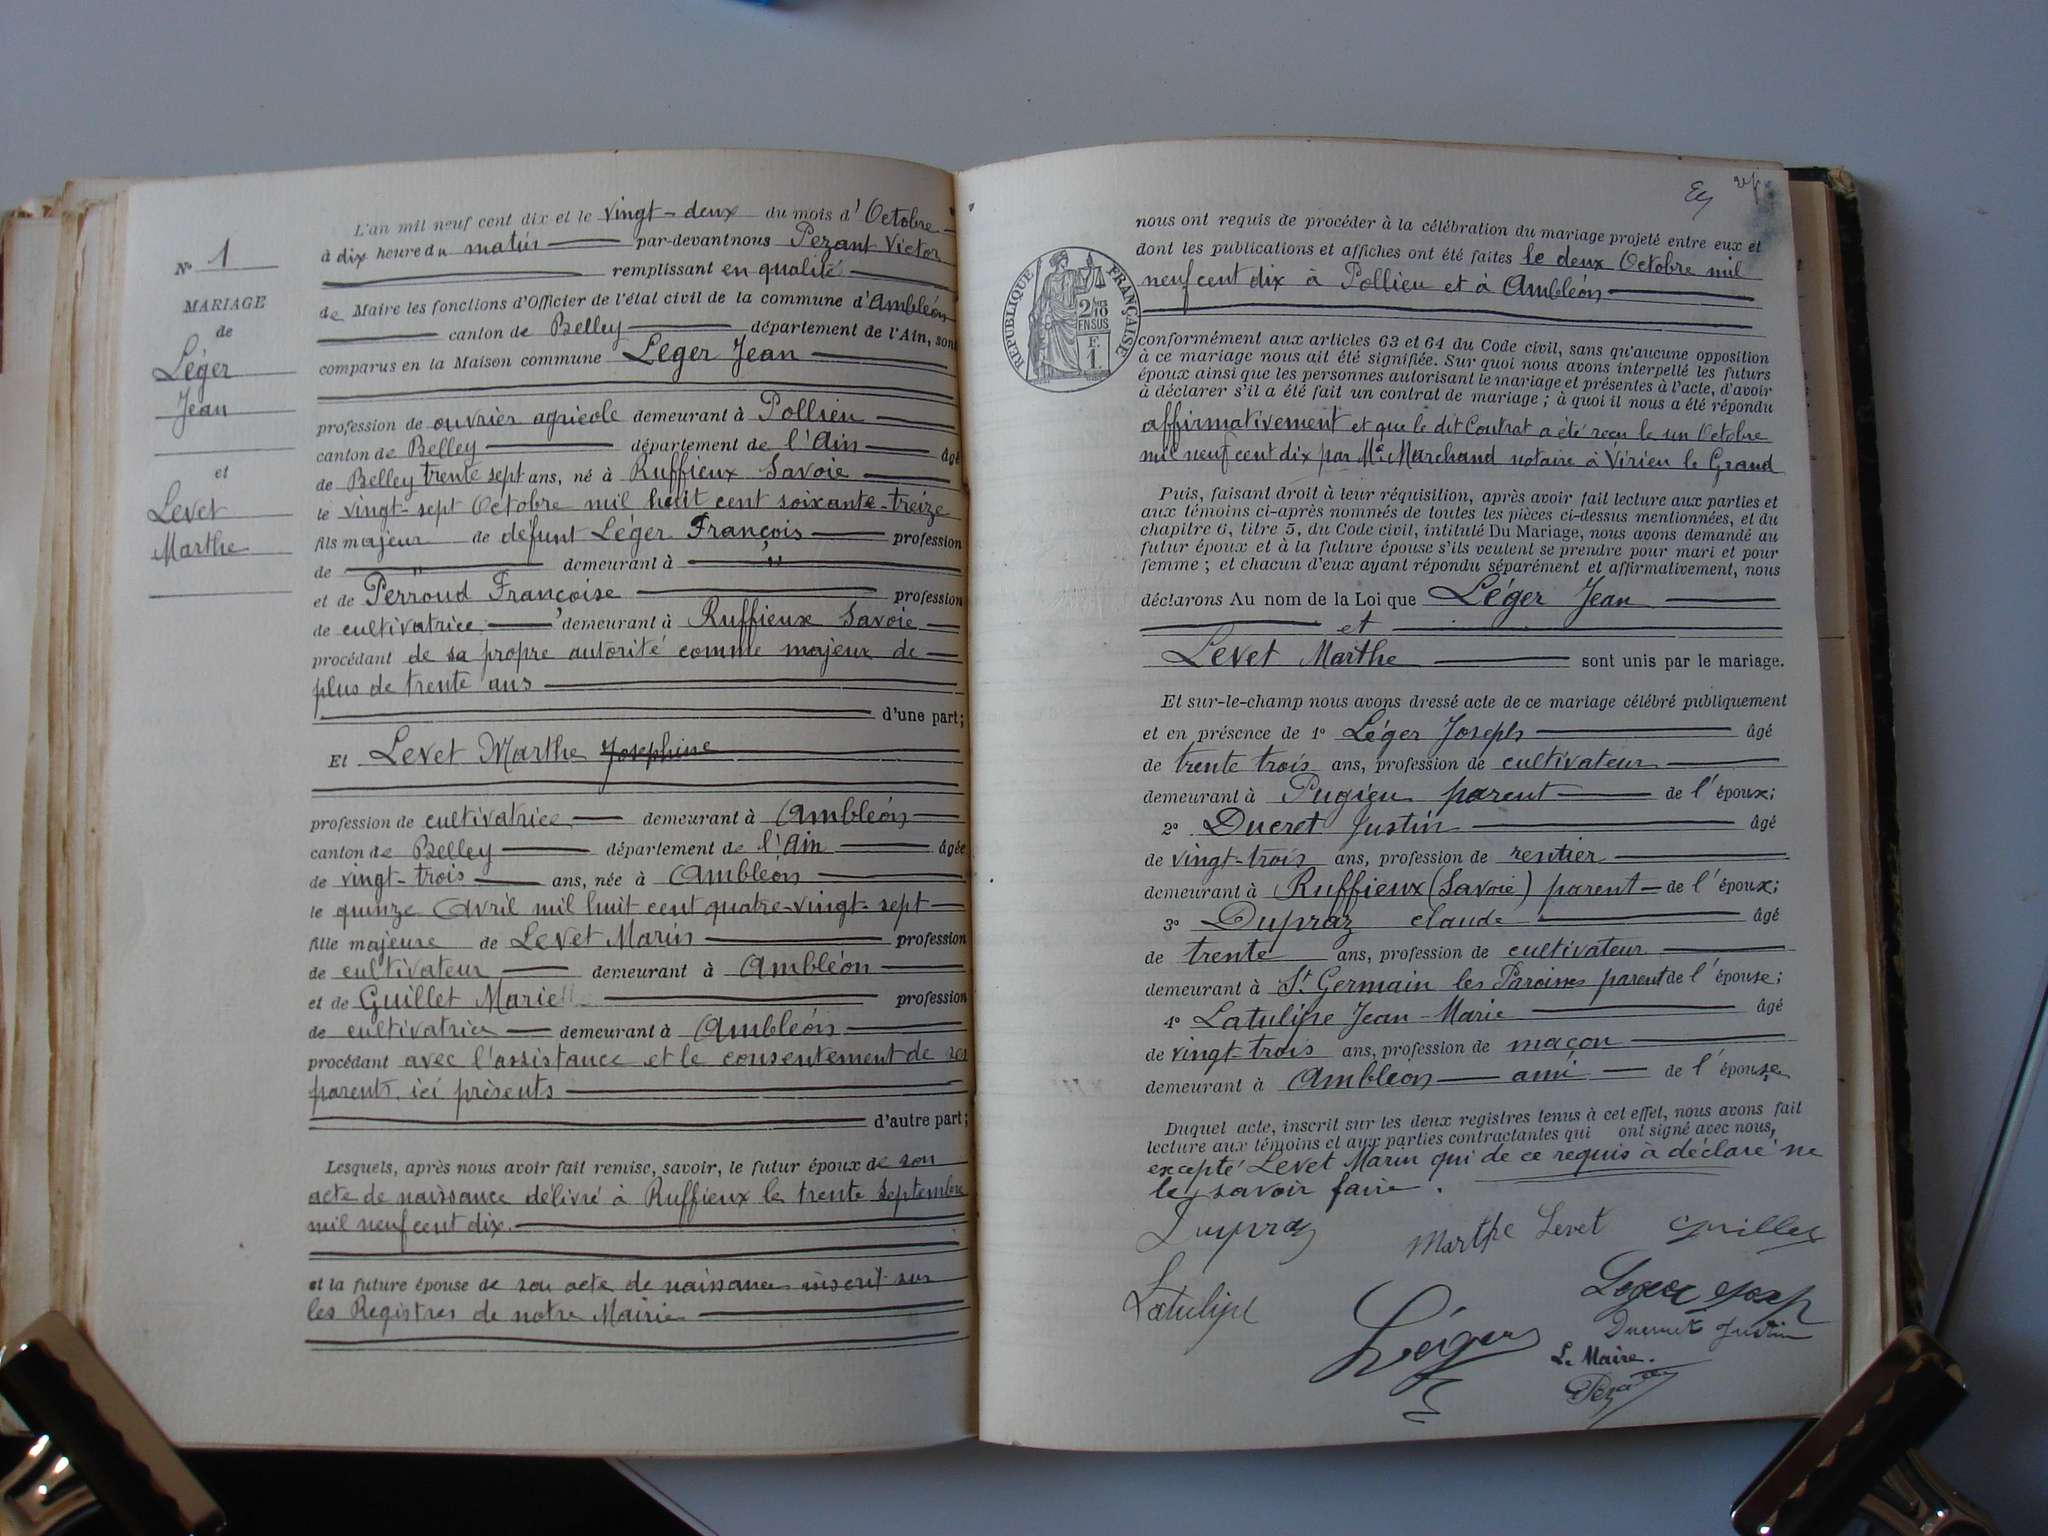 N° 1
MARIAGE
de
Léger
Jean
et
Levet
Marthe
L'an mil neuf cent dix et le vingt-deux du mois d'Octobre
à dix heure du matin par-devant nous Pezant Victor
remplissant en qualité
de Maire les fonctions d'Officier de l'état civil de la commune d'Ambléon
canton de Belley département de l'Ain, sont
comparus en la Maison commune Léger Jean
profession de ouvrier agricole demeurant à Pollieu
canton de Belley département de l'Ain âgé
de Belley trente sept ans, né à Ruffieux Savoie
le vingt-sept Octobre mil huit cent soixante-treize
fils majeur de défunt Léger François profession
de " demeurant à "
et de Perroud Françoise profession
de cultivatrice demeurant à Ruffieux Savoie
procédant de sa propre autorité comme majeur de
plus de trente ans
d'une part;
Et Levet Marthe Josephine
profession de cultivatrice demeurant à Ambléon
canton de Belley département de l'Ain âgée
de vingt-trois ans, née à Ambléon
le quinze Avril mil huit cent quatre-vingt-sept
fille majeure de Levet Marin profession
de cultivateur demeurant à Ambléon
et de Guillet Marie profession
de cultivatrice demeurant à Ambléon
procédant avec l'assistance et le consentement de ses
parents ici présents
d'autre part;
Lesquels, après nous avoir fait remise, savoir, le futur époux de son
acte de naissance délivré à Ruffieux le trente Septembre
mil neuf cent dix.
et la future épouse de son acte de naissance inscrit sur
les Registres de notre Mairie
RÉPUBLIQUE FRANÇAISE
2/10
EN SUS
F.
1
nous ont requis de procéder à la célébration du mariage projeté entre eux et
dont les publications et affiches ont été faites le deux Octobre mil
neuf cent dix à Pollieu et à Ambléon
conformément aux articles 63 et 64 du Code civil, sans qu'aucune opposition
à ce mariage nous ait été signifiée. Sur quoi nous avons interpellé les futurs
époux ainsi que les personnes autorisant le mariage et présentes à l'acte, d'avoir
à déclarer s'il a été fait un contrat de mariage; à quoi il nous a été répondu
affirmativement et que le dit Contrat a été reçu le un Octobre
mil neuf cent dix par Me Marchand notaire à Virieu le Grand
Puis, faisant droit à leur réquisition, après avoir fait lecture aux parties et
aux témoins ci-après nommés de toutes les pièces ci-dessus mentionnées, et du
chapitre 6, titre 5, du Code civil, intitulé Du Mariage, nous avons demandé au
futur époux et à la future épouse s'ils veulent se prendre pour mari et pour
femme; et chacun d'eux ayant répondu séparément et affirmativement, nous
déclarons Au nom de la Loi que Léger Jean
et
Levet Marthe sont unis par le mariage.
Et sur-le-champ nous avons dressé acte de ce mariage célébré publiquement
et en présence de 1° Léger Joseph âgé
de trente trois ans, profession de cultivateur
demeurant à Pugieu parent de l'époux;
2° Ducret Justin âgé
de vingt-trois ans, profession de rentier
demeurant à Ruffieux (Savoie) parent de l'époux;
3° Dupraz claude âgé
de trente ans, profession de cultivateur
demeurant à St Germain les Paroisses parent de l'épouse;
4° Latulipe Jean-Marie âgé
de vingt-trois ans, profession de maçon
demeurant à Ambléon ami de l'épouse
Duquel acte, inscrit sur les deux registres tenus à cet effet, nous avons fait
lecture aux témoins et aux parties contractantes qui ont signé avec nous,
excepté Levet Marin qui de ce requis à déclaré ne
le savoir faire.
Dupraz Marthe Levet Guillet
Latulipe Léger Leger Josep
Ducret Justin
Le Maire.
Pezant